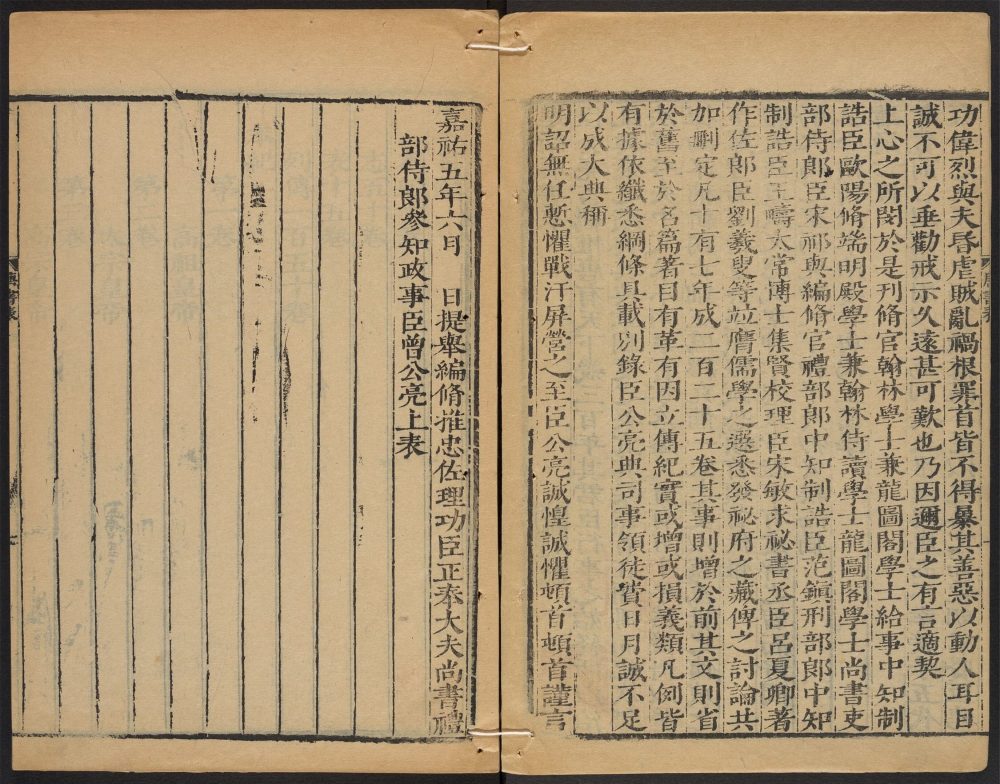 功偉烈與夫昏虐賊亂禍根罪首皆不得暴其善惡以動人耳目
誠不可以垂勸戒示久遠甚可歎也乃因邇臣之有言適契
上心之所閔於是刊脩官翰林學士兼龍圖閣學士給事中知制
誥臣歐陽脩端明殿學士兼翰林侍讀學士龍圖閣學士尚書吏
部侍郎臣宋祁與編脩官禮部郎中知制誥臣范鎭刑部郎中知
制誥臣王疇太常博士集賢校理臣宋敏求祕書丞臣呂夏卿著
作佐郎臣劉羲叟等並膺儒學之選悉發祕府之藏俾之討論共
加刪定凡十有七年成二百二十五卷其事則增於前其文則省
於舊至於名篇著目有革有因立傳紀實或增或損義類凡例皆
有據依纖悉綱條具載別錄臣公亮典司事領徒費日月誠不足
以成大典稱
明詔無任慙懼戰汗屏營之至臣公亮誠惶誠懼頓首頓首謹言
嘉祐五年六月 日提舉編脩推忠佐理功臣正奉大夫尚書禮
部侍郎參知政事臣曾公亮上表